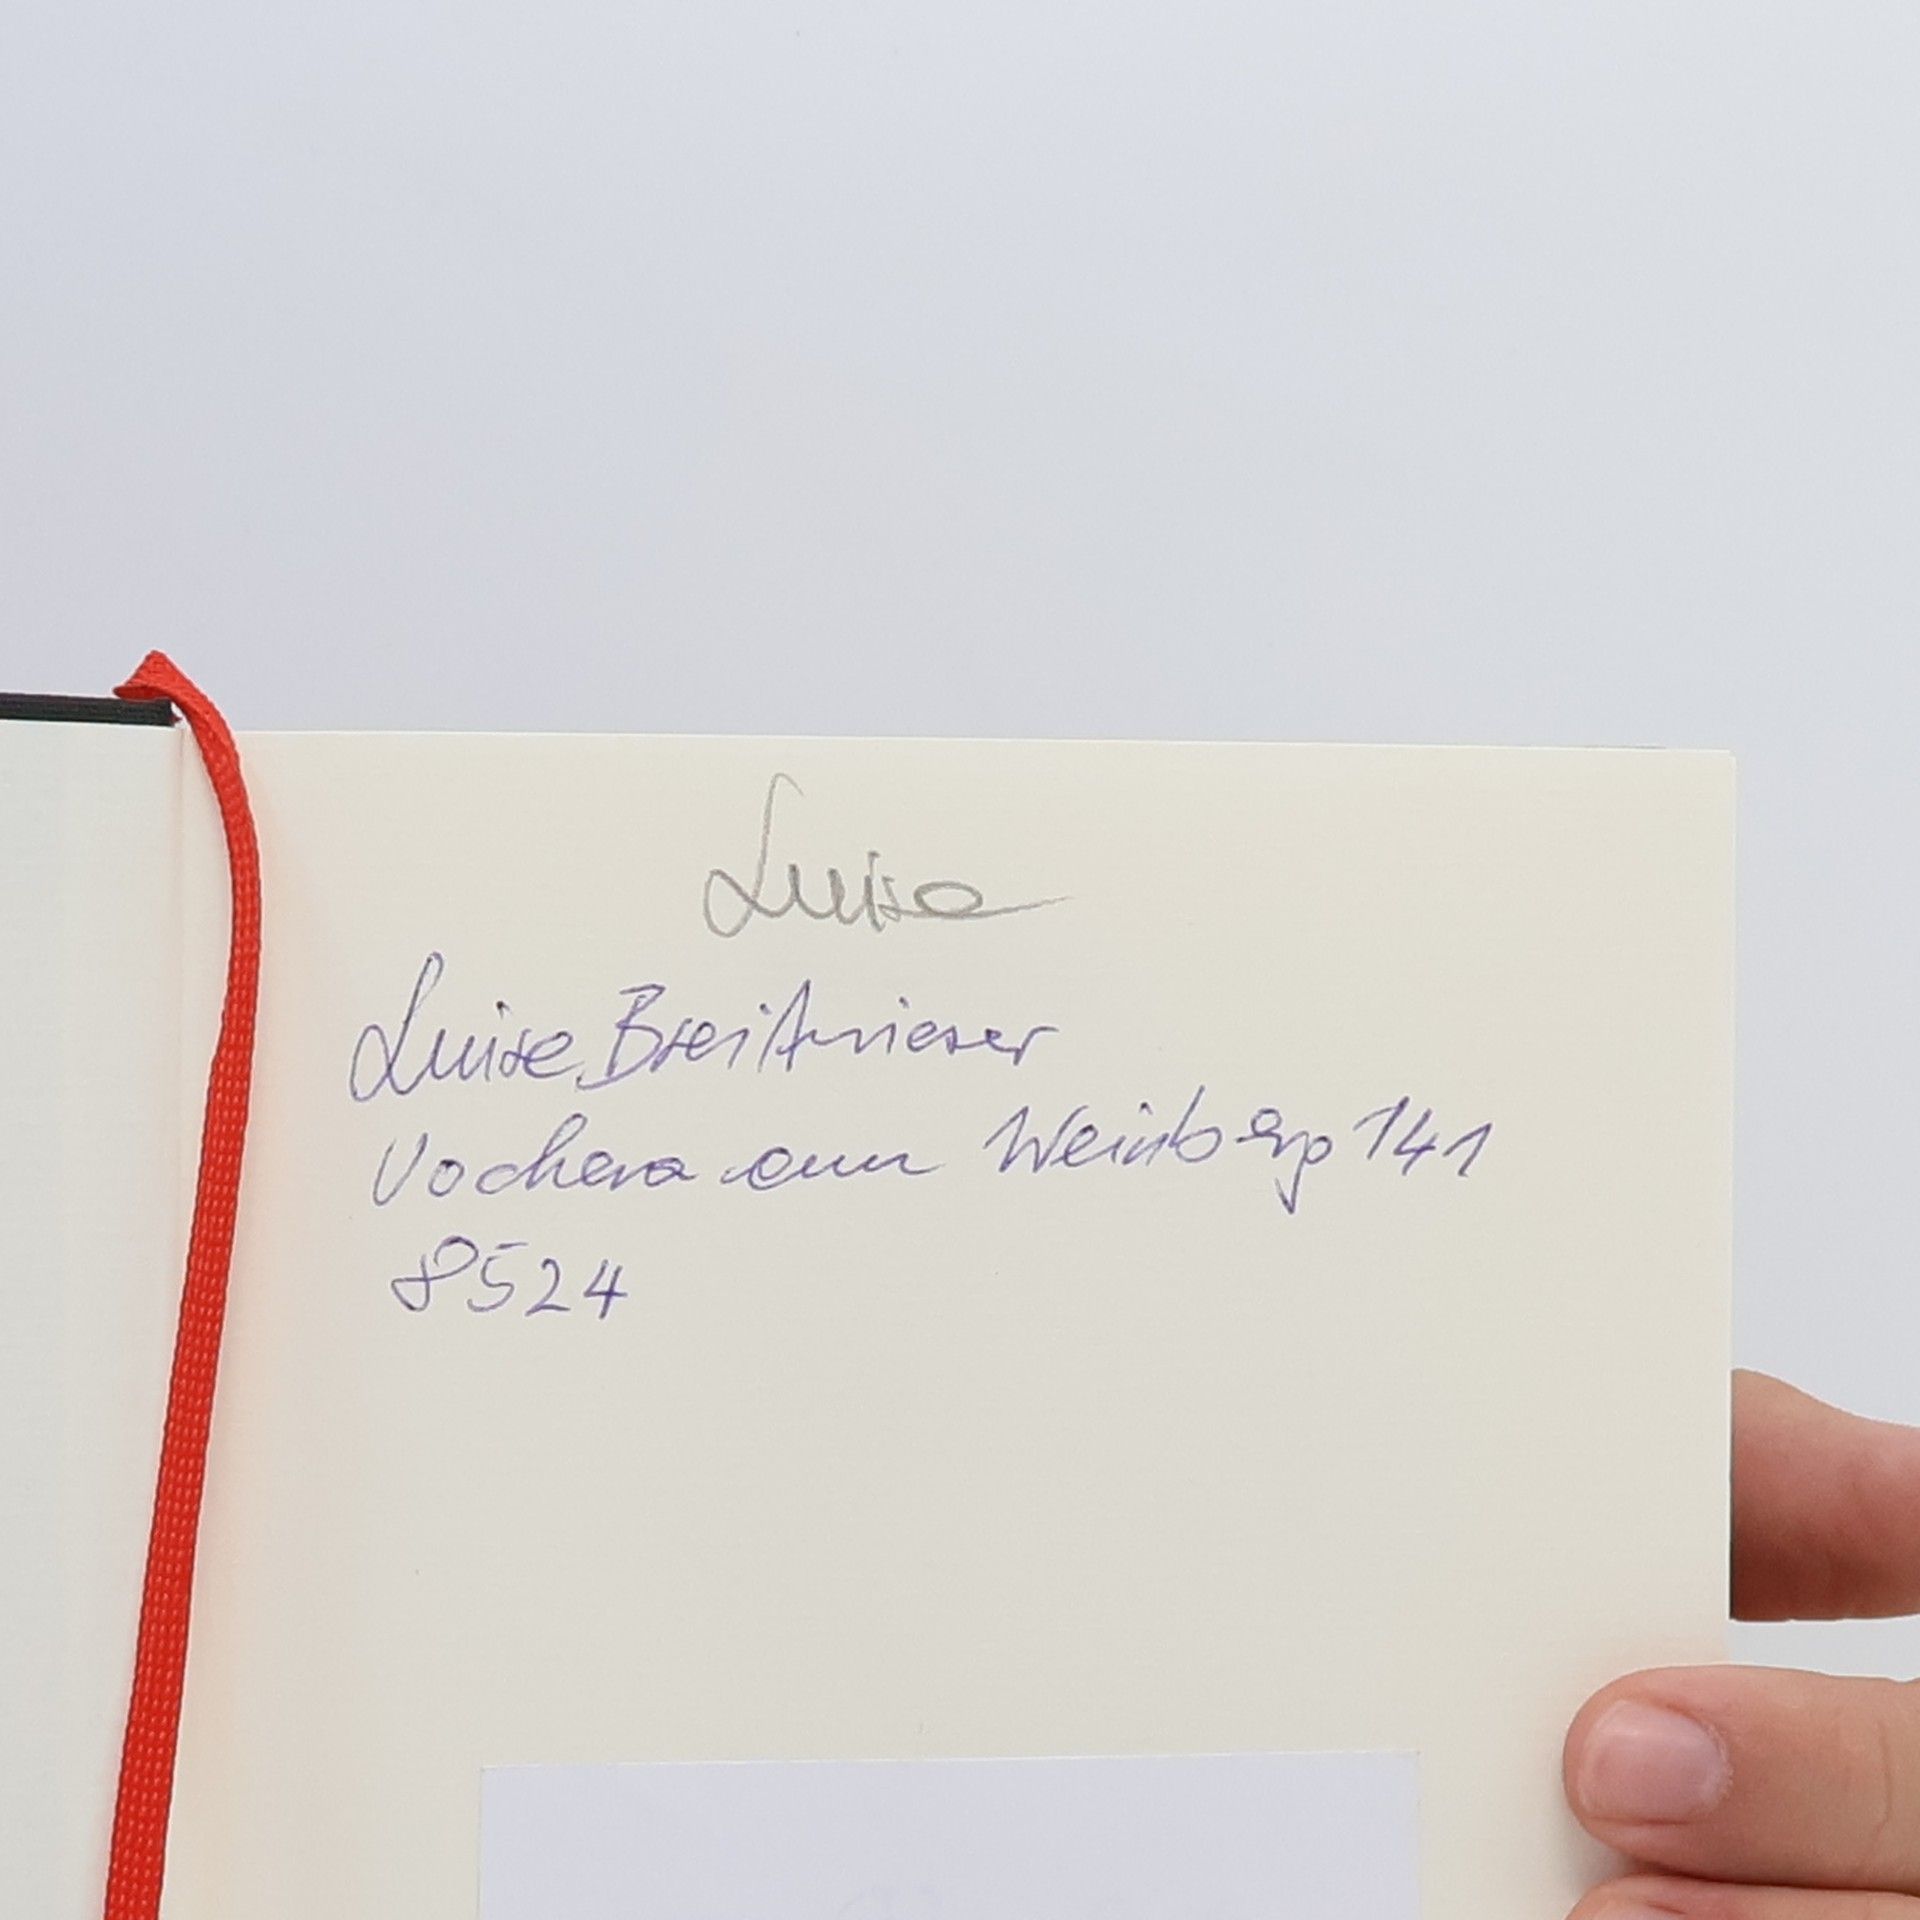 Luise
Luise Breitwieser
Vochera am Weinberg 141
8524